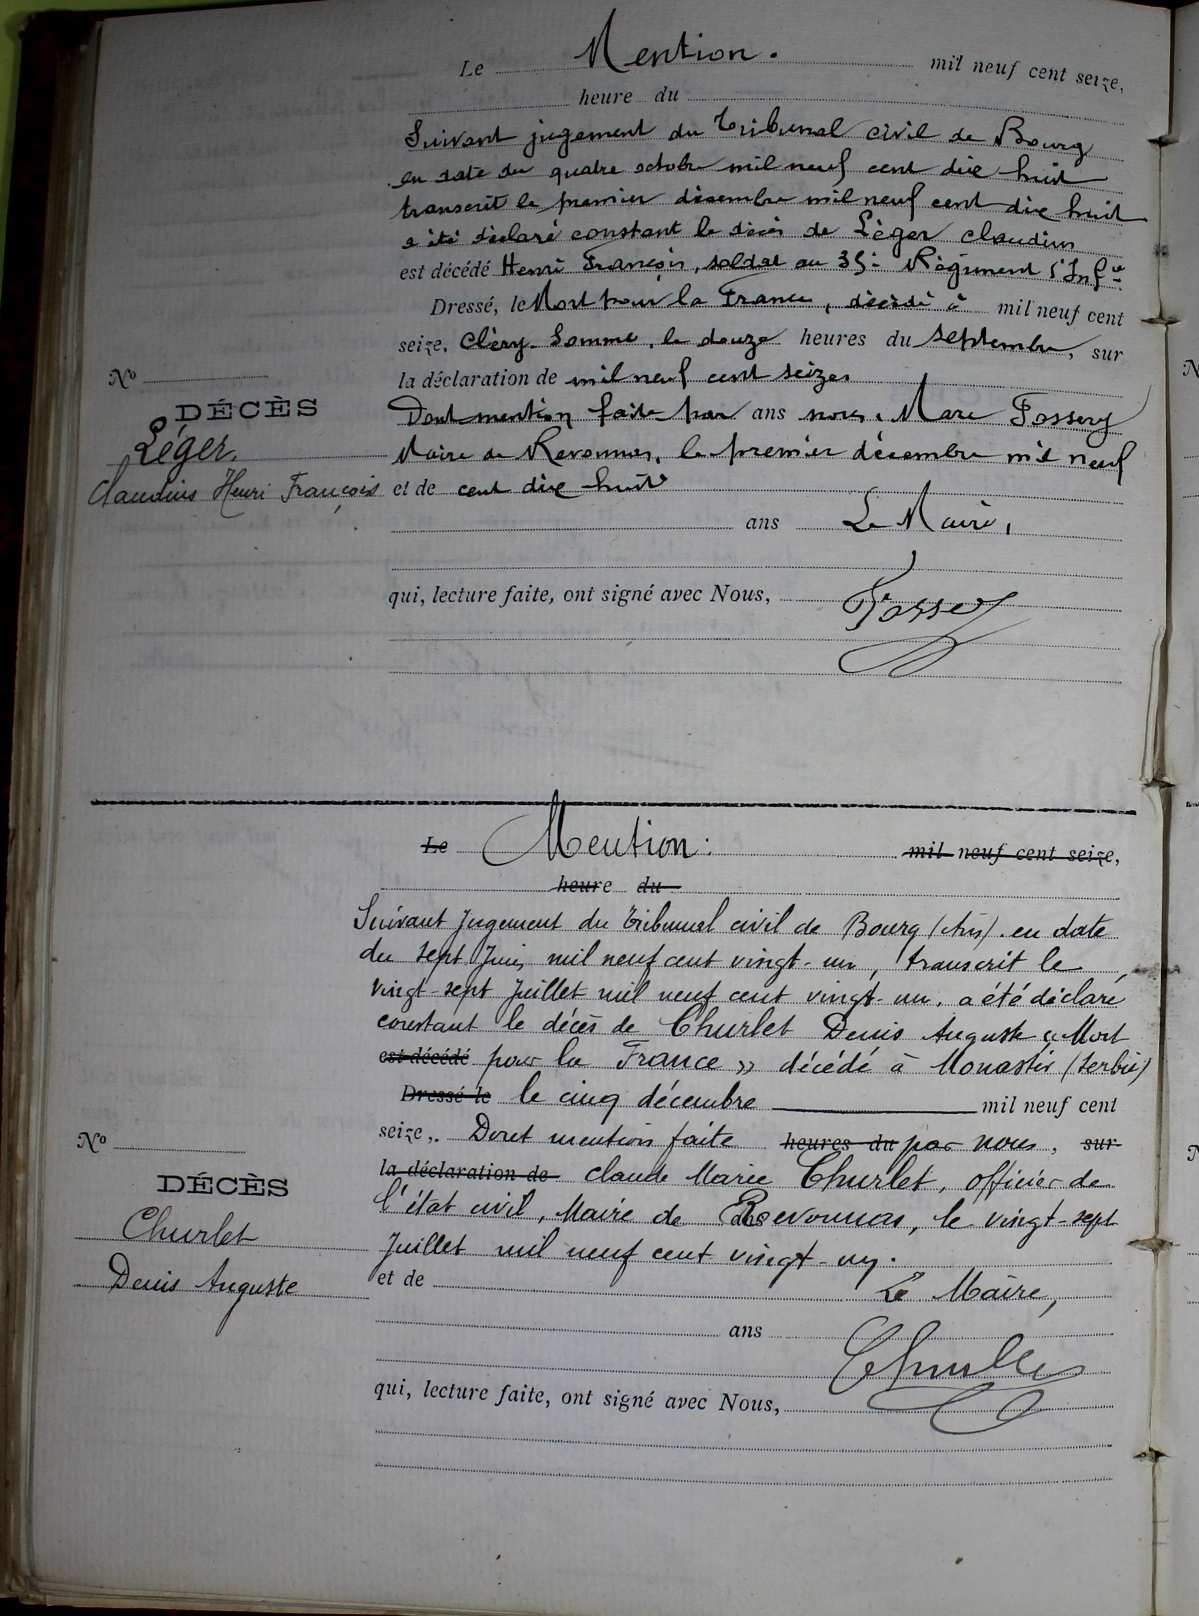 Le Mention. mil neuf cent seize,
heure du
Suivant jugement du Tribunal civil de Bourg
en date du quatre octobre mil neuf cent dix huit
transcrit le premier décembre mil neuf cent dix huit
a été déclaré constant le décès de Léger Claudius
est décédé Henri François, soldat au 35e Régiment d'Infie
Dressé, le Mort pour la France, décédé à mil neuf cent
seize, Cléry-Somme, le douze heures du septembre, sur
la déclaration de mil neuf cent seize.
Nº
DÉCÈS
Léger.
Claudius Henri François
Dont mention faite par ans nous, Marc Fossery
Maire de Revonnas, le premier décembre mil neuf
et de cent dix huit
ans Le Maire,
qui, lecture faite, ont signé avec Nous,
Le Mention: mil neuf cent seize,
heure du
Suivant Jugement du Tribunal civil de Bourg (Ain). en date
du sept Juin mil neuf cent vingt-un, transcrit le
vingt-sept Juillet mil neuf cent vingt-un. a été déclaré
constant le décès de Churlet Denis Auguste « Mort
est décédé pour la France » décédé à Monastir (Serbie)
Dressé le le cinq décembre mil neuf cent
seize,. Dont mention faite heures du par nous, sur
la déclaration de Claude Marie Churlet, officier de
l'état civil, Maire de ans Revonnas, le vingt-sept
Juillet mil neuf cent vingt-un.
Nº
DÉCÈS
Churlet
Denis Auguste
et de Le Maire,
ans
Churlet
qui, lecture faite, ont signé avec Nous,